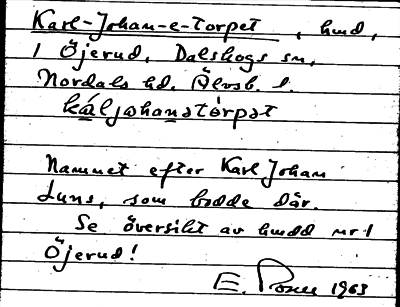 Karl-Johan-e-torpet, hmd,
1 Öjerud, Dalskogs sn,
Nordals hd. Älvsb. l.
káljohanatòrpat
Namnet efter Karl Johan
Luns, som bodde där.
Se översikt av hmdd nr 1
Öjerud!
E. 1963